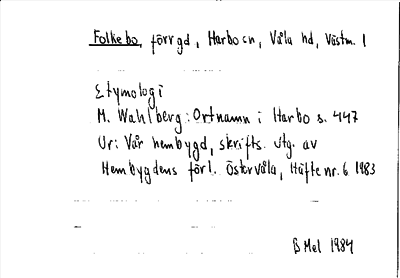 Folkebo, förr gd, Harbo sn, Våla hd, Västm. l
Etymologi
M. Wahlberg: Ortnamn i Harbo s. 447
Ur: Vår hembygd, skrifts. utg. av
Hembygdens förl. Östervåla, Häfte nr. 6 1983
B Mel 1984